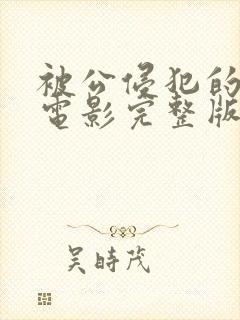 被公侵犯的
電影完整版
吴時茂